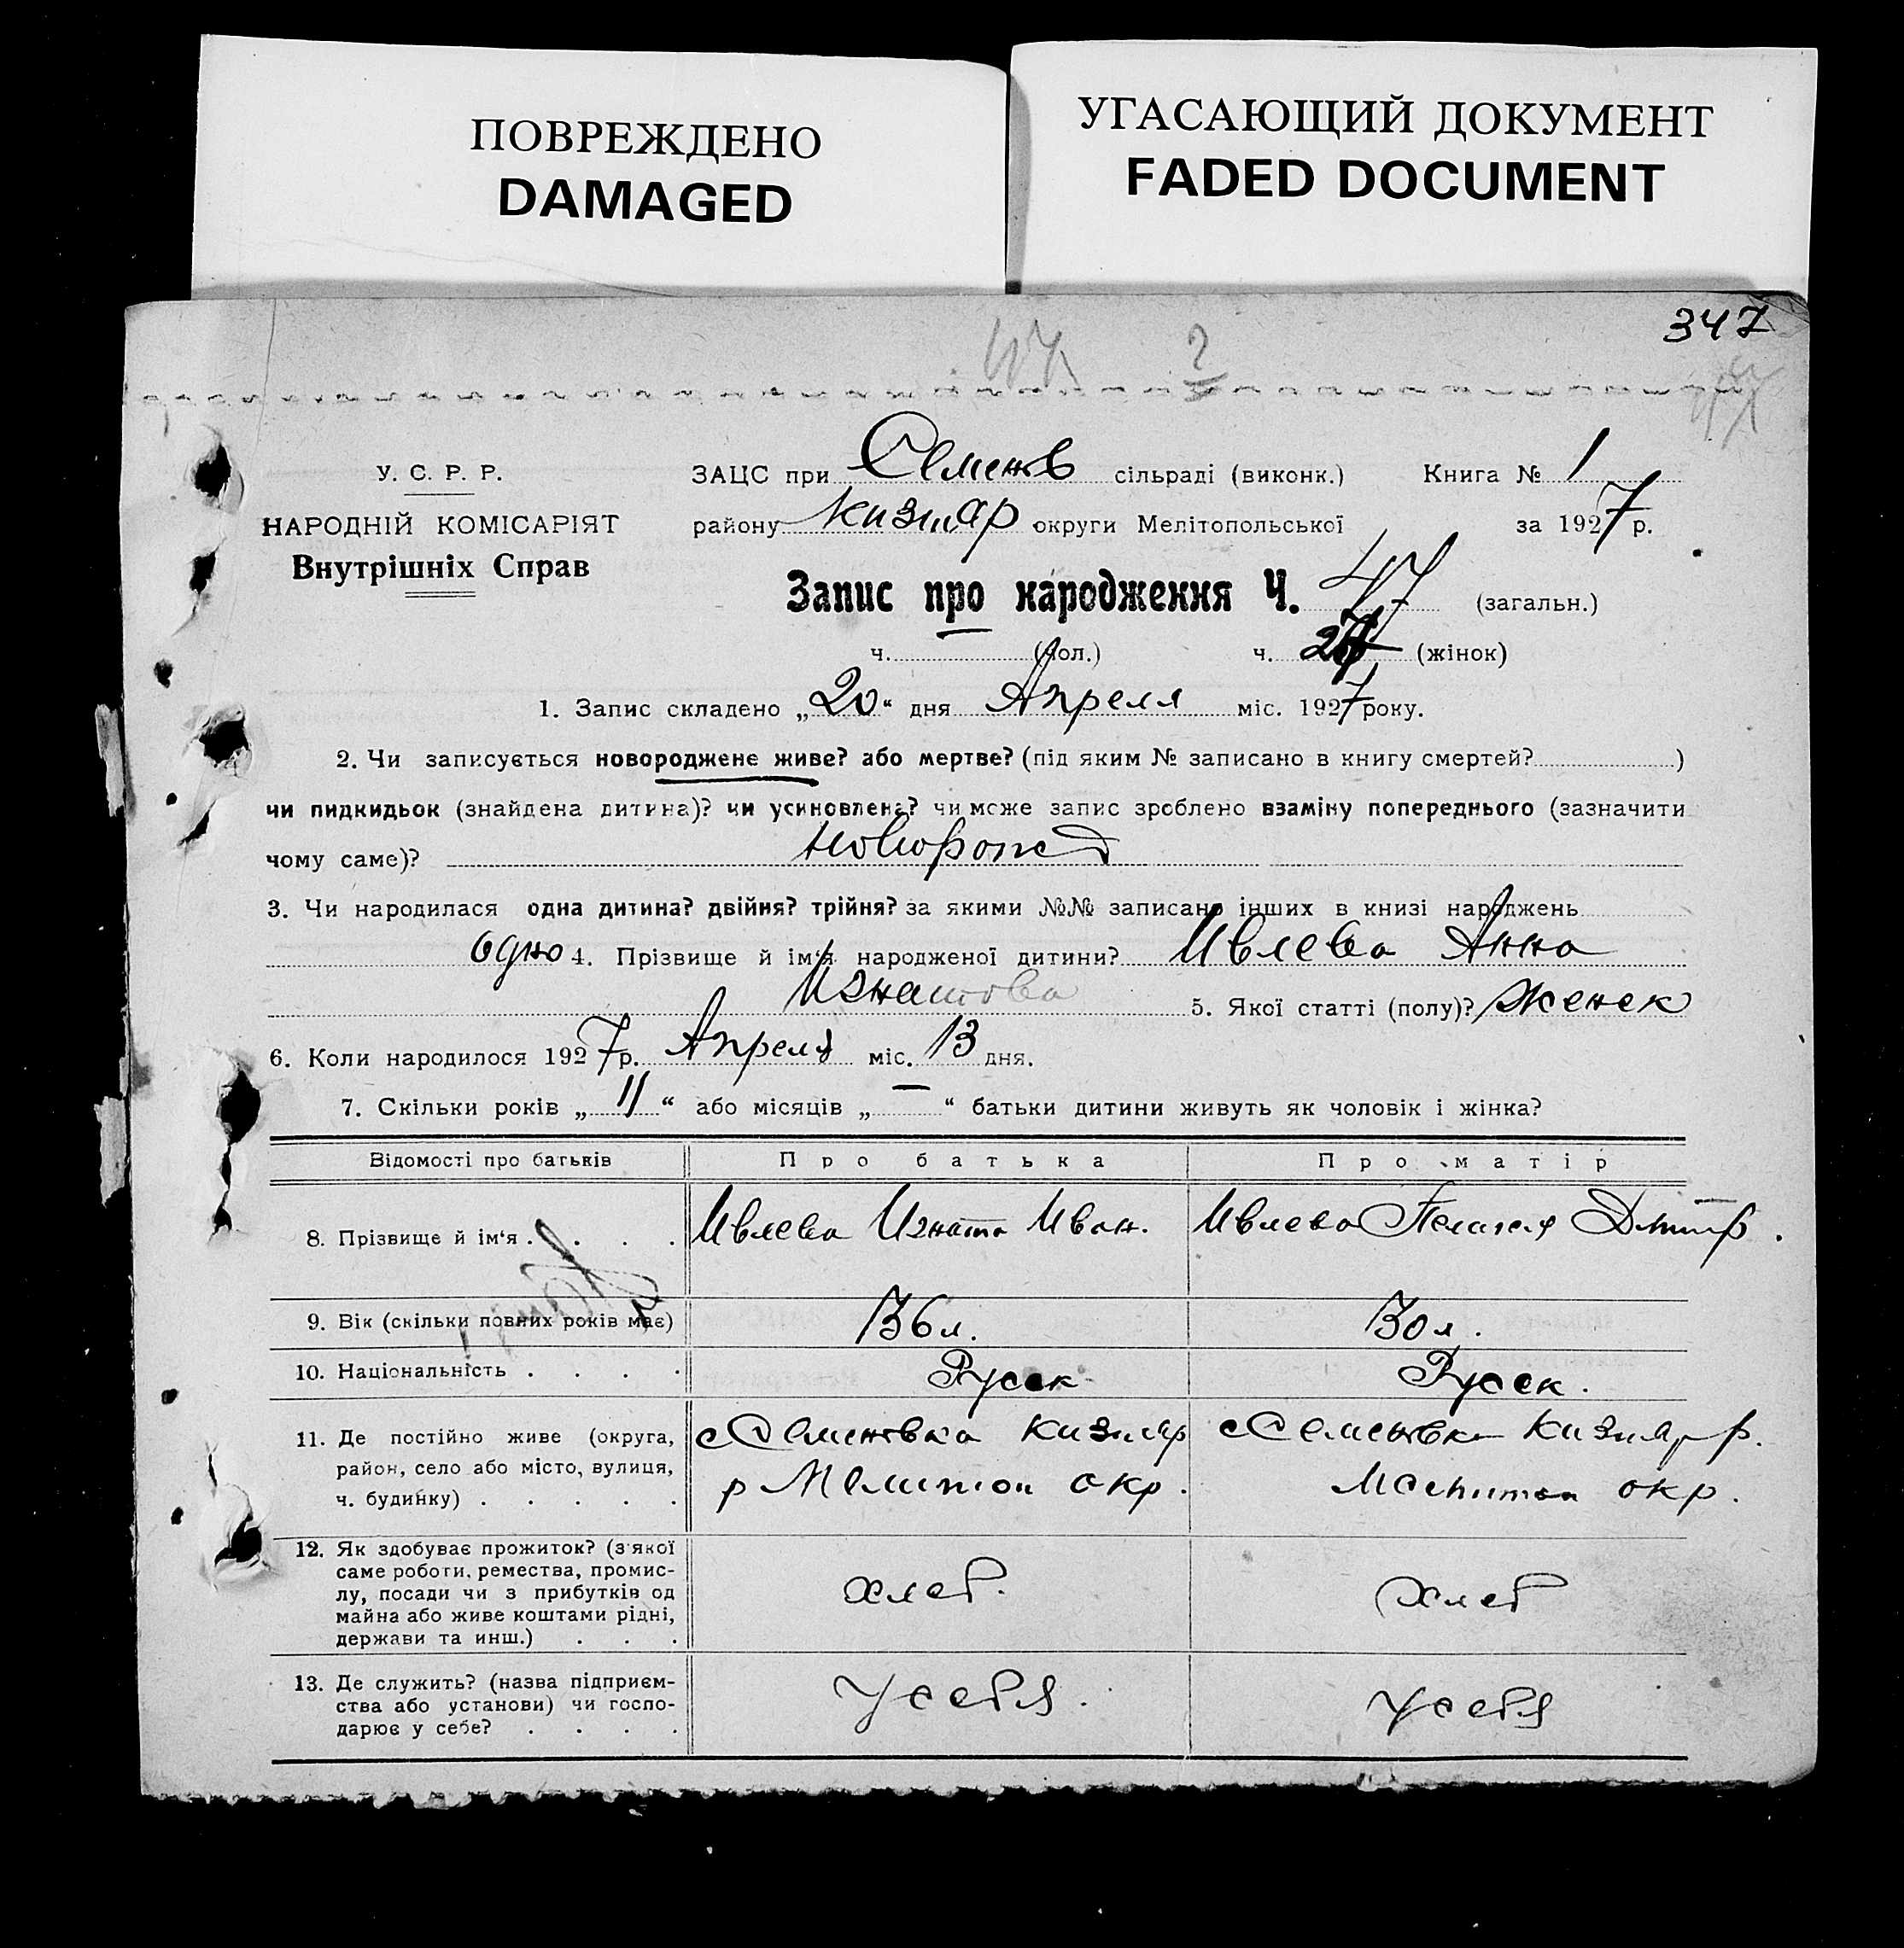 ПОВРЕЖДЕНО
DAMAGED
УГАСАЮЩИЙ ДОКУМЕНТ
FADED DOCUMENT
347
47 2
У. С. Р. Р.
НАРОДНІЙ КОМІСАРІЯТ
Внутрішніх Справ
ЗАЦС при Семенв сільраді (виконк.) Книга № 1
району Кизияр округи Мелітопольської за 1927 р.
Запис про народження Ч. 47 (загальн.)
ч. (чол.) ч. (жінок)
1. Запис складено „20“ дня Апреля міс. 1927 року.
2. Чи записується новороджене живе? або мертве? (під яким № записано в книгу смертей? )
чи пидкидьок (знайдена дитина)? чи усиновлена? чи може запис зроблено взаміну попереднього (зазначити
чому саме)? новорожд
3. Чи народилася одна дитина? двійня? трійня? за якими №№ записано інших в книзі народжень
одно 4. Прізвище й ім‘я народженої дитини? Ивлева Анна
Игнатова 5. Якої статті (полу)? женск
6. Коли народилося 1927 р. Апреля міс. 13 дня.
7. Скільки років „11“ або місяців „—“ батьки дитини живуть як чоловік і жінка?
Відомості про батьків Про батька Про матір
8. Прізвище й ім‘я . . . . Ивлева Игната Иван. Ивлева Пелагея Дмитр.
9. Вік (скільки повних років має) 36 л. 30 л.
10. Національність . . . . Руск Руск.
11. Де постійно живе (округа, район, село або місто, вулиця, ч. будинку) . . . . . с Семеновка Кизияр
р Мелитоп окр.
с Семеновка Кизияр р.
Мелитоп окр.
12. Як здобуває прожиток? (з якої
саме роботи, ремества, промис-
лу, посади чи з прибутків од
майна або живе коштами рідні,
держави та инш.) . . .
хлеб. хлеб
13. Де служить? (назва підприєм-
ства або установи) чи госпо-
дарює у себе? . . . .
у себя. у себя